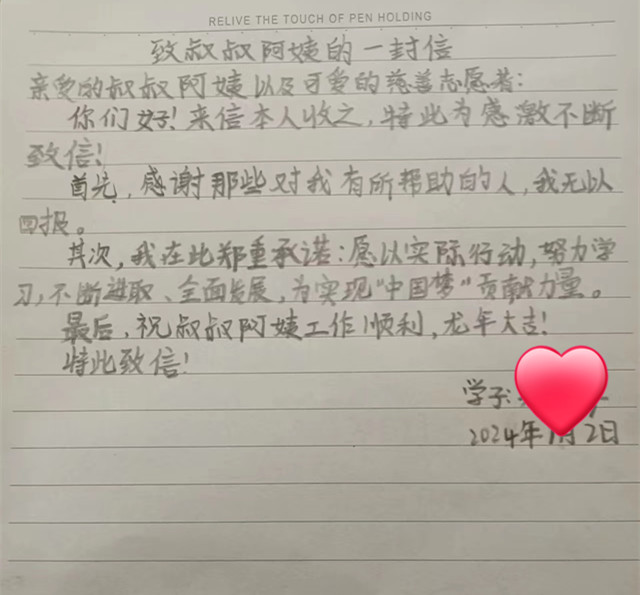 RELIVE THE TOUCH OF PEN HOLDING
致叔叔阿姨的一封信
亲爱的叔叔阿姨以及可爱的慈善志愿者:
你们好!来信本人收之,特此为感激不断
致信!
首先,感谢那些对我有所帮助的人,我无以
回报。
其次,我在此郑重承诺:愿以实际行动,努力学
习,不断进取、全面发展,为实现"中国梦"贡献力量。
最后,祝叔叔阿姨工作顺利,龙年大吉!
特此致信!
学子:
2024年1月2日